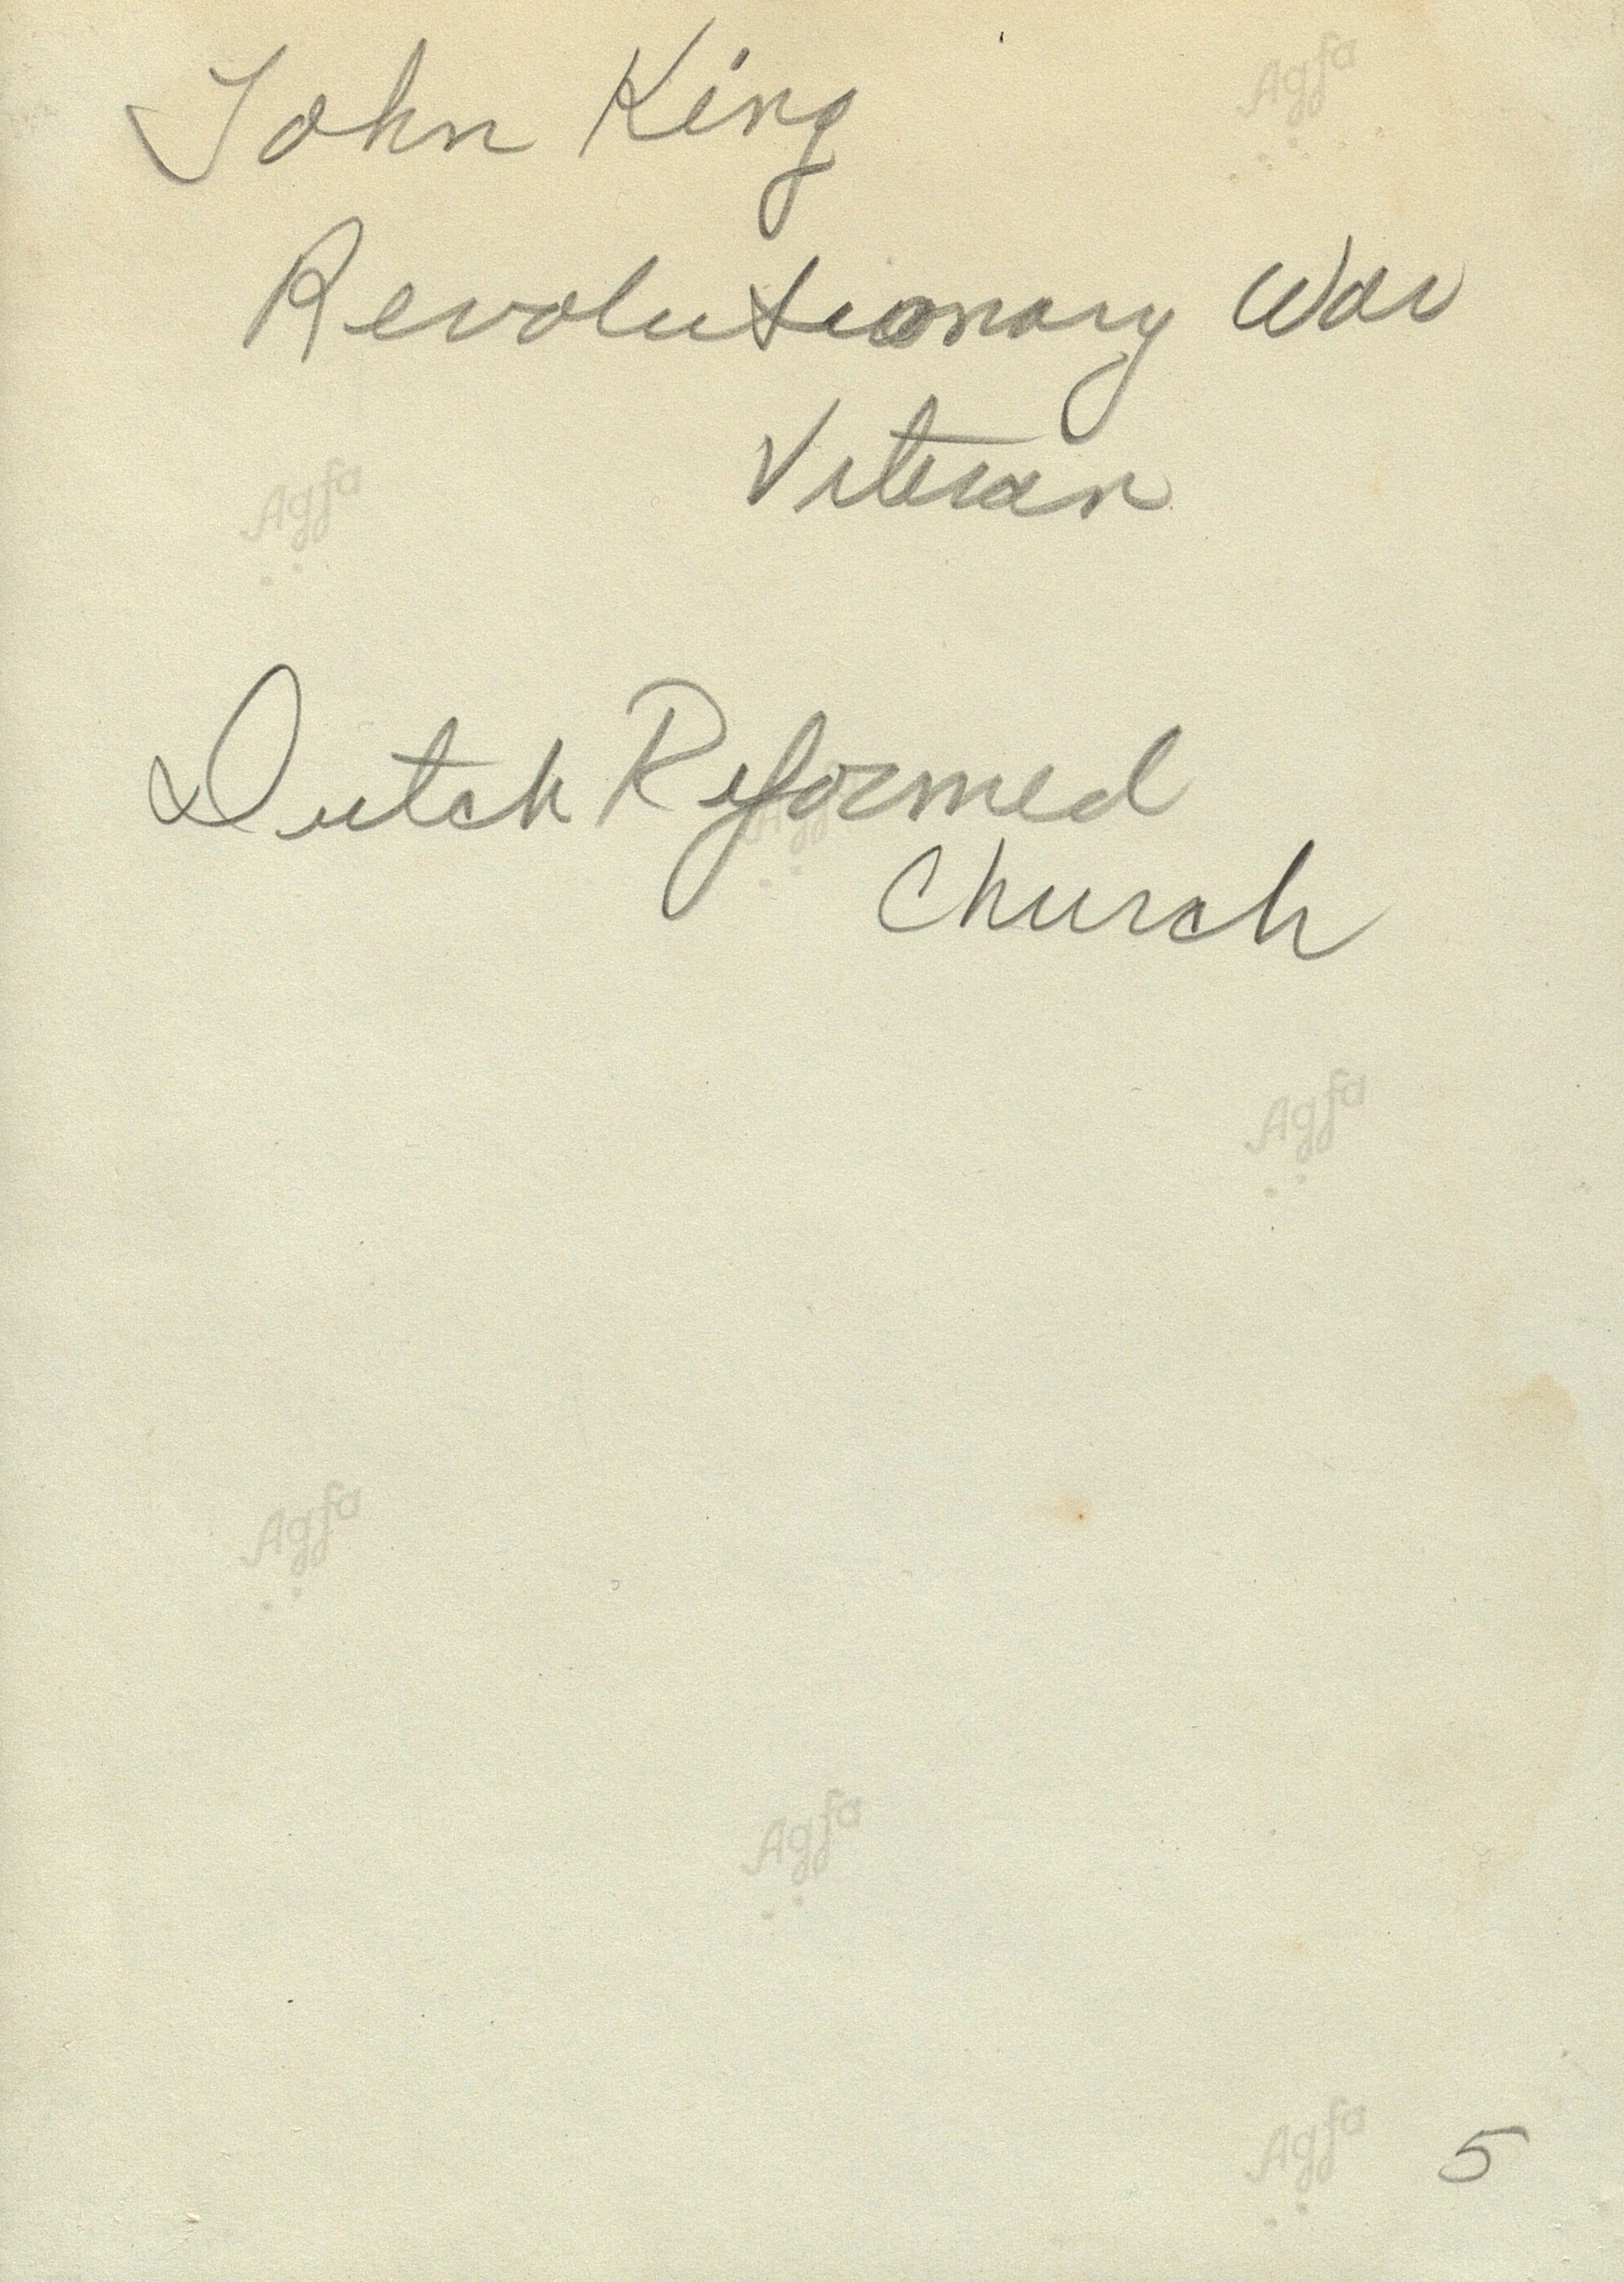 Agfa
John King
Revolutionary War
Veteran
Agfa
Dutch Reformed
Agfa
Church
Agfa
Agfa
Agfa
Agfa
5